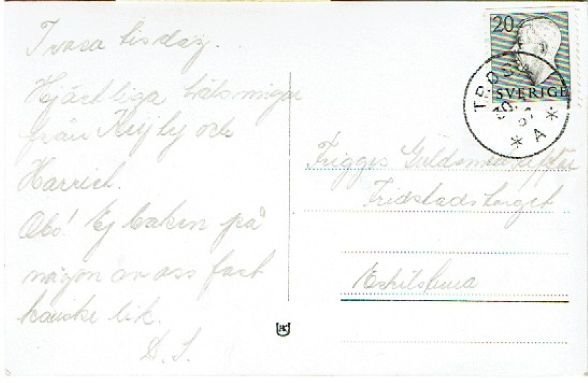 Trosa tisdag.
Hjärtliga hälsningar
från och
Harriet.
Obs! Ej baken på
någon av oss fast
kanske lik.
D. S.
20
SVERIGE
TROSA
A
Frigges Guldsmedsaffär
Fridstadstorget
Eskilstuna